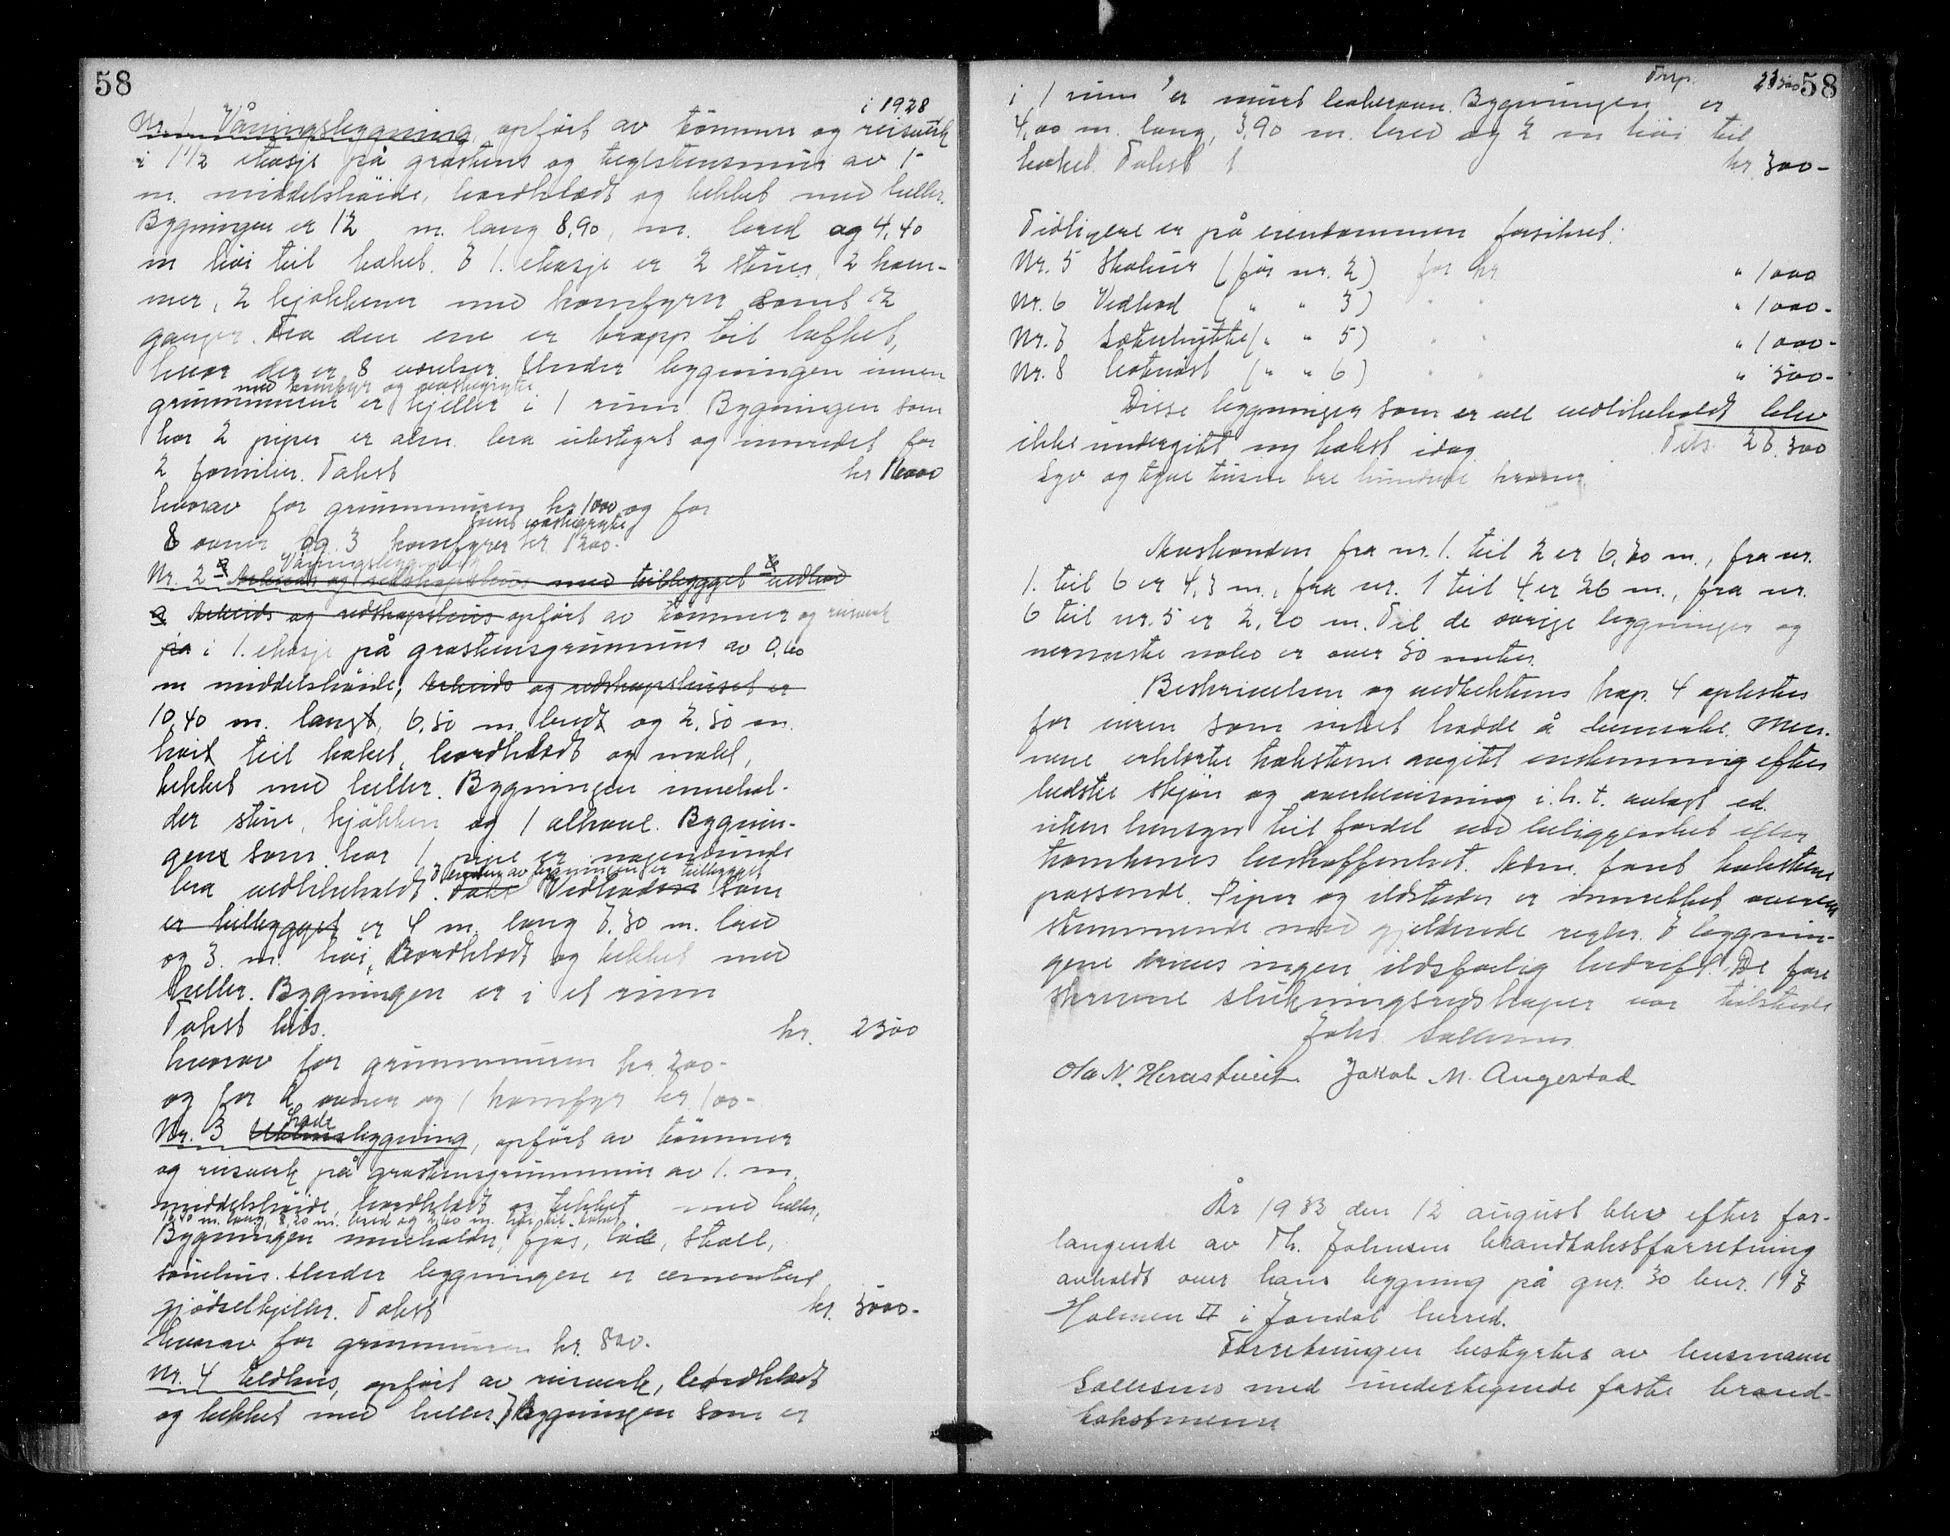 58
i 1928
Nr. 1 Våningsbygning, opført av tømmer og reisverk
i 1 1/2 etasje på gråstens og teglstensmur av 1-
m. middelshøide, bordklædt og tekket med heller.
Bygningen er 12 m. lang 8,90, m. bred og 4,40
m høi til taket. I 1. etasje er 2 stuer, 2 kam-
mer, 2 kjøkkener med komfyrer samt 2
ganger. Fra den ene er trapp til loftet,
hvor der er 8 værelser. Under bygningen innen
med komfyr og vaskegryte
grunnmuren er kjeller i 1 rum. Bygningen som
har 2 piper er alm. bra utstyrt og innredet for
2 familier. Takst kr 16000
hvorav for grunnmuren kr 1000 og for
samt vaskegryte
8 ovner og 3 komfyrer kr. 1300.-
Våningsbygning
Nr. 2 a Arbeids og redskapshus med tilbygget vedbod
a Arbeids og redskapshus opført av tømmer og reisverk
på i 1. etasje på gråstensgrunnmur av 0,60
m middelshøide, Arbeids og redskapshuset er
10,40 m. langt, 6,50 m. bredt og 2,50 m.
høit til taket, bordklædt og malt,
tekket med heller. Bygningen innehol-
der stue, kjøkken og 1 alkove. Bygnin-
gen som har 1 pipe er nogenlunde
I enden av bygningen er tilbygget
bra vedlikeholdt. Takst Vedboden som
er tilbygget er 4 m. lang 3.30 m. bred
og 3. m. høi, Bordklædt og tekket med
heller. Bygningen er i et rum
Takst tils. kr. 2500
hvorav for grunnmuren kr 200-
og for 2 ovner og 1 komfyr kr 100-
Lade
Nr. 3 Uthusbygning, opført av tømmer
og reisverk på gråstensgrunnmur av 1. m.
middelshøide, bordklædt og tekket med heller,
m. lang, 8,20 m. bred og 2,60 m. høi til taket
Bygningen inneholder, fjøs, lade, stall,
sauehus. Under bygningen er cementert
gjødselkjeller. Takst kr. 5000.-
hvorav for grunnmuren kr. 800.
Nr. 4 Eldhus, opført av reisverk, bordklædt
og tekket med heller. Bygningen som er
58
Trsp. 23500
i 1 rum er muret bakerovn. Bygningen er
4,00 m. lang, 3,90 m. bred og 2 m høi til
taket. Takst kr. 300-
Tidligere er på eiendommen forsikret:
Nr. 5 Skabur (før nr. 2) for kr " 1000
Nr. 6 Vedbod ( " " 3) " " " 1000.-
Nr. 7 Sæterhytte ( " " 5) " " " 1000-
Nr. 8 Båtnaust ( " " 6) " " " 500-
Disse bygninger som er vel vedlikeholdt blev
ikke undergitt ny takst idag. Tils. 27.300
Syv og tyve tusen tre hundrede kroner.
Avstanden fra nr. 1. til 2 er 6,20 m., fra nr.
1. til 6 er 4,3 m., fra nr. 1 til 4 er 26 m., fra nr.
6 til nr. 5 er 2,20 m. Til de øvrige bygninger og
nermeste nabo er over 50 meter.
Beskrivelsen og vedtektens kap. 4 oplestes
for eieren som intet hadde å bemerke. Men-
nene erklærte takstene avgitt enstemmig efter
bedste skjøn og overbevisning i. h. t. avlagt ed.
uten hensyn til fordel ved beliggenhet efter
tomtenes beskaffenhet. Adm. fant takstene
passende. Piper og ildsteder er innrettet overens
stemmende med gjeldende regler. I bygnin-
gene drives ingen ildsfarlig bedrift. De fore
skrevne slukningsredskaper var tilstede
Johs. Sollesnes
Ola N. Herastveit. Jakob M. Augestad
År 1933 den 12 august blev efter for-
langende av Th. Johnsen brandtakstforretning
avholdt over hans bygning på gnr. 30 bnr. 197
Holmen II i Jondal herred.
Forretningen bestyrtes av lensmann
Sollesnes med undertegnede faste brand-
takstmenn